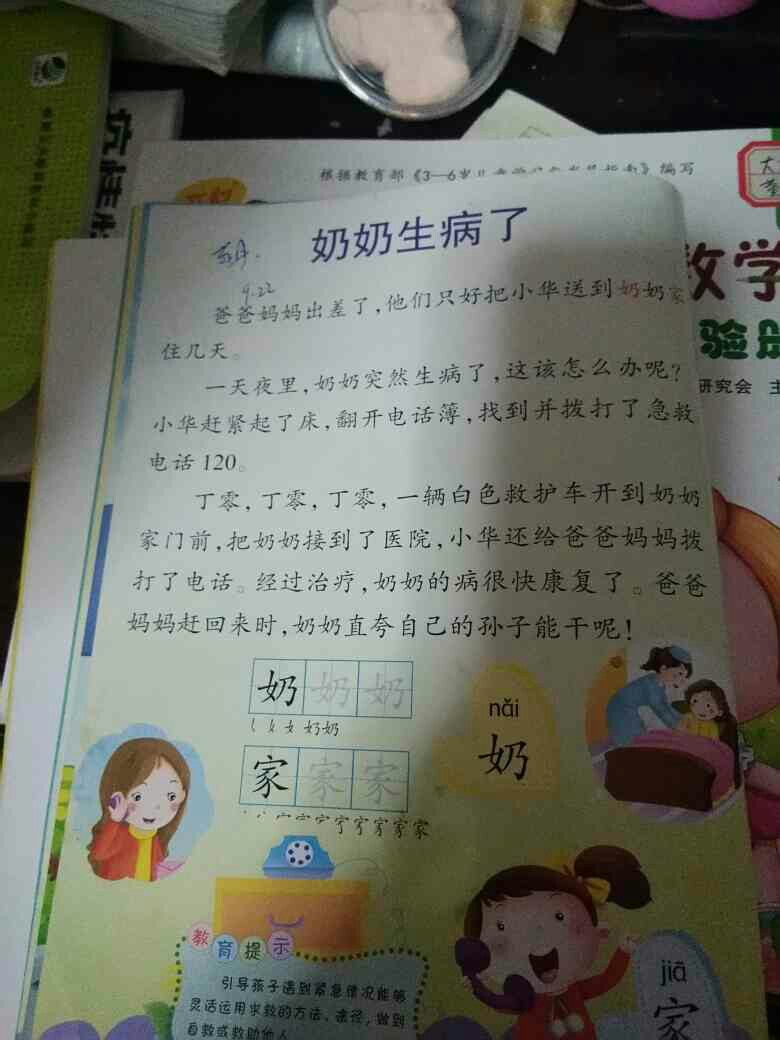 根据教育部《3—6岁儿童学习与发展指南》编写
数学
验册
研究会 主
奶奶生病了
4.22
爸爸妈妈出差了，他们只好把小华送到奶奶家
住几天。
一天夜里，奶奶突然生病了，这该怎么办呢？
小华赶紧起了床，翻开电话簿，找到并拨打了急救
电话 120。
丁零，丁零，丁零，一辆白色救护车开到奶奶
家门前，把奶奶接到了医院，小华还给爸爸妈妈拨
打了电话。经过治疗，奶奶的病很快康复了。爸爸
妈妈赶回来时，奶奶直夸自己的孙子能干呢！
奶 奶 奶
nǎi
奶
家 家 家
教育提示
引导孩子遇到紧急情况能够
灵活运用求救的方法、途径，做到
自救或救助他人
jiā
家